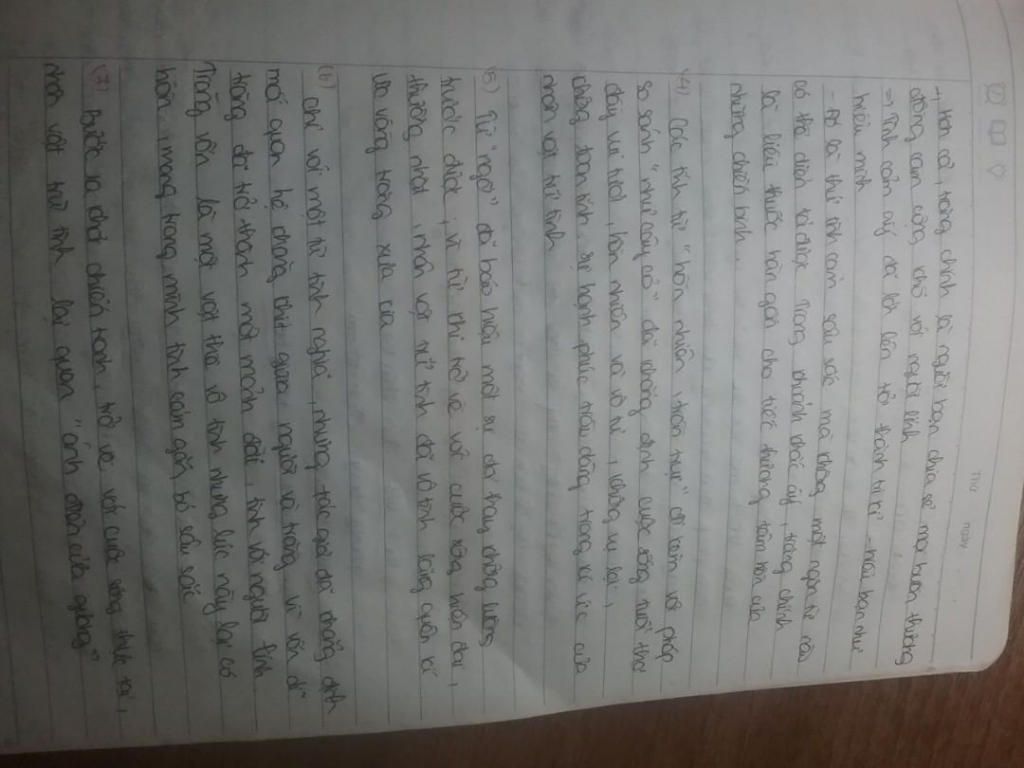 THỨ NGÀY
+ Hơn cả, trăng chính là người bạn chia sẻ mọi buồn thương
đồng cam cộng khổ với người lính
=> Tình cảm ấy đã kết lên, trở thành tri kỉ - người bạn như
hiểu mình
- Đó là thứ tình cảm sâu sắc mà không một ngôn từ nào
có thể diễn tả được. Trong khoảnh khắc ấy, trăng chính
là liều thuốc hàn gắn cho vết thương tâm hồn của
những chiến binh.
(4) Các tính từ "hồn nhiên, trần trụi" đi kèm với phép
so sánh "như cây cỏ" đã khẳng định cuộc sống tuổi thơ
đầy vui tươi, hồn nhiên và vô tư, không vụ lợi,
không toan tính. Sự hạnh phúc trào dâng trong kí ức của
nhân vật trữ tình
(5) Từ "ngỡ" đã báo hiệu một sự đổi thay không lường
trước được, vì từ khi trở về với cuộc sống hiện đại,
thường nhật, nhân vật trữ tình đã vô tình lãng quên kí
ức vầng trăng xưa kia
(6) Chỉ với một từ tình nghĩa, nhưng tác giả đã khẳng định
mối quan hệ chẳng chịt giữa người và trăng vì vốn dĩ
trăng đã trở thành một mảnh đời, tình với người lính.
Trăng vốn là một vật thể vô tình nhưng lúc này lại có
hồn, mang trong mình tình cảm gắn bó sâu sắc
(7) Bước ra khỏi chiến tranh, trở về với cuộc sống thực tại,
nhân vật trữ tình lại quen "ánh điện cửa gương"